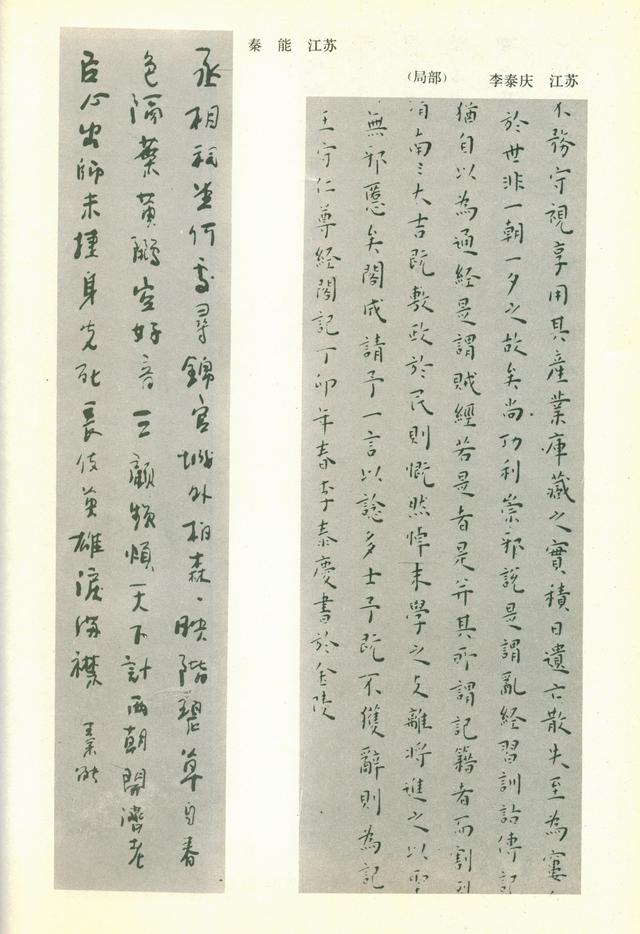 李泰庆 江苏
（局部）
不務守視享用其產業庫藏之實積日遺亡散失至為窶
於世非一朝一夕之故矣尚功利崇邪說是謂亂經習訓詁傳記
猶自以為通經是謂賊經若是者是并其所謂記籍者而割裂
渭南〻大吉既敷政於民則慨然悼末學之支離將進之以聖
無邪慝矣閣成請予一言以諗多士予既不獲辭則為記
王守仁尊經閣記丁卯年春李泰慶書於金陵
秦 能 江苏
丞相祠堂何處尋錦官城外柏森〻映階碧草自春
色隔葉黃鸝空好音三顧頻煩天下計兩朝開濟老
臣心出師未捷身先死長使英雄淚滿襟 秦能